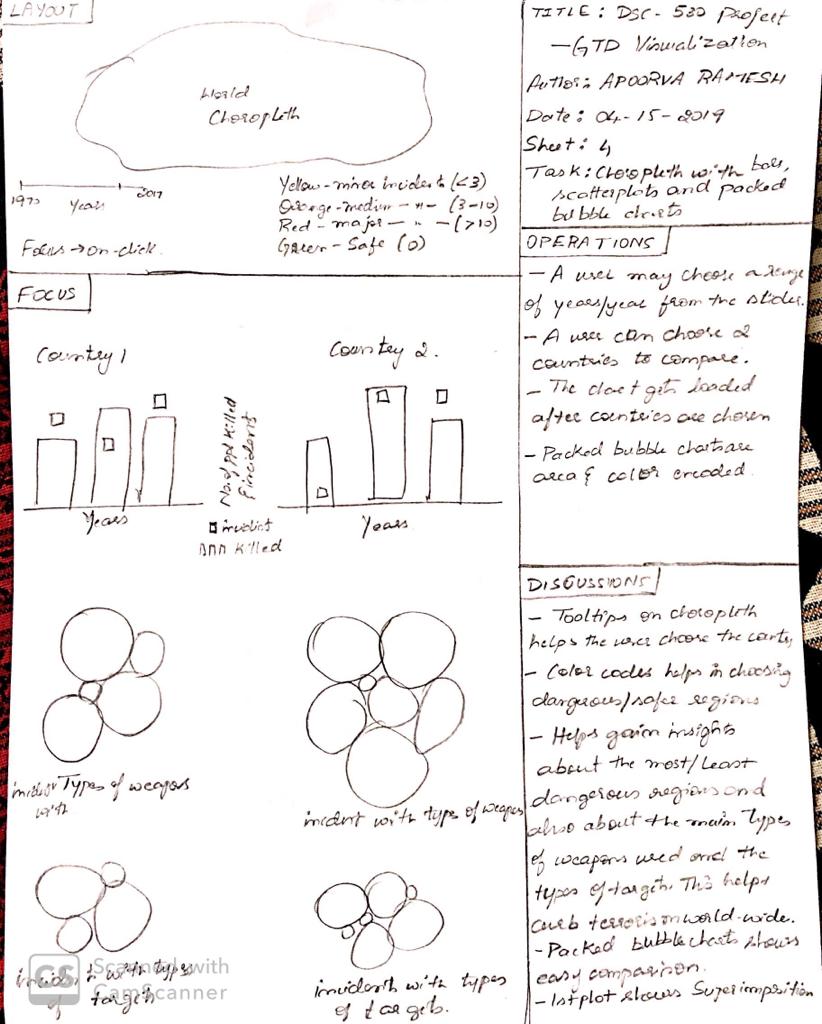 LAYOUT
World
Choropleth
1970 Years 2017
Yellow - minor incidents (<3)
Orange - medium - " - (3-10)
Red - major - " - (>10)
Green - Safe (0)
Focus → on-click.
FOCUS
Country 1
Country 2.
No. of ppl killed
& incidents
Years
incident
killed
Years
incident Types of weapons
with
incident with types of weapons
incidents with types
of targets
incidents with types
of targets.
CS Scanned with
CamScanner
TITLE: DSC-530 Project
- GTD Visualization
Author: APOORVA RAMESH
Date: 04-15-2019
Sheet: 4
Task: Choropleth with bars,
scatterplots and packed
bubble charts
OPERATIONS
- A user may choose a range
of years/year from the slider.
- A user can choose 2
countries to compare.
- The chart gets loaded
after countries are chosen
- Packed bubble charts are
area & color encoded.
DISCUSSIONS
- Tooltips on choropleth
helps the user choose the country
- Color codes helps in choosing
dangerous/safe regions
- Helps gain insights
about the most/least
dangerous regions and
also about the main types
of weapons used and the
types of targets. This helps
curb terrorism world-wide.
- Packed bubble charts shows
easy comparison.
- 1st plot shows Superimposition